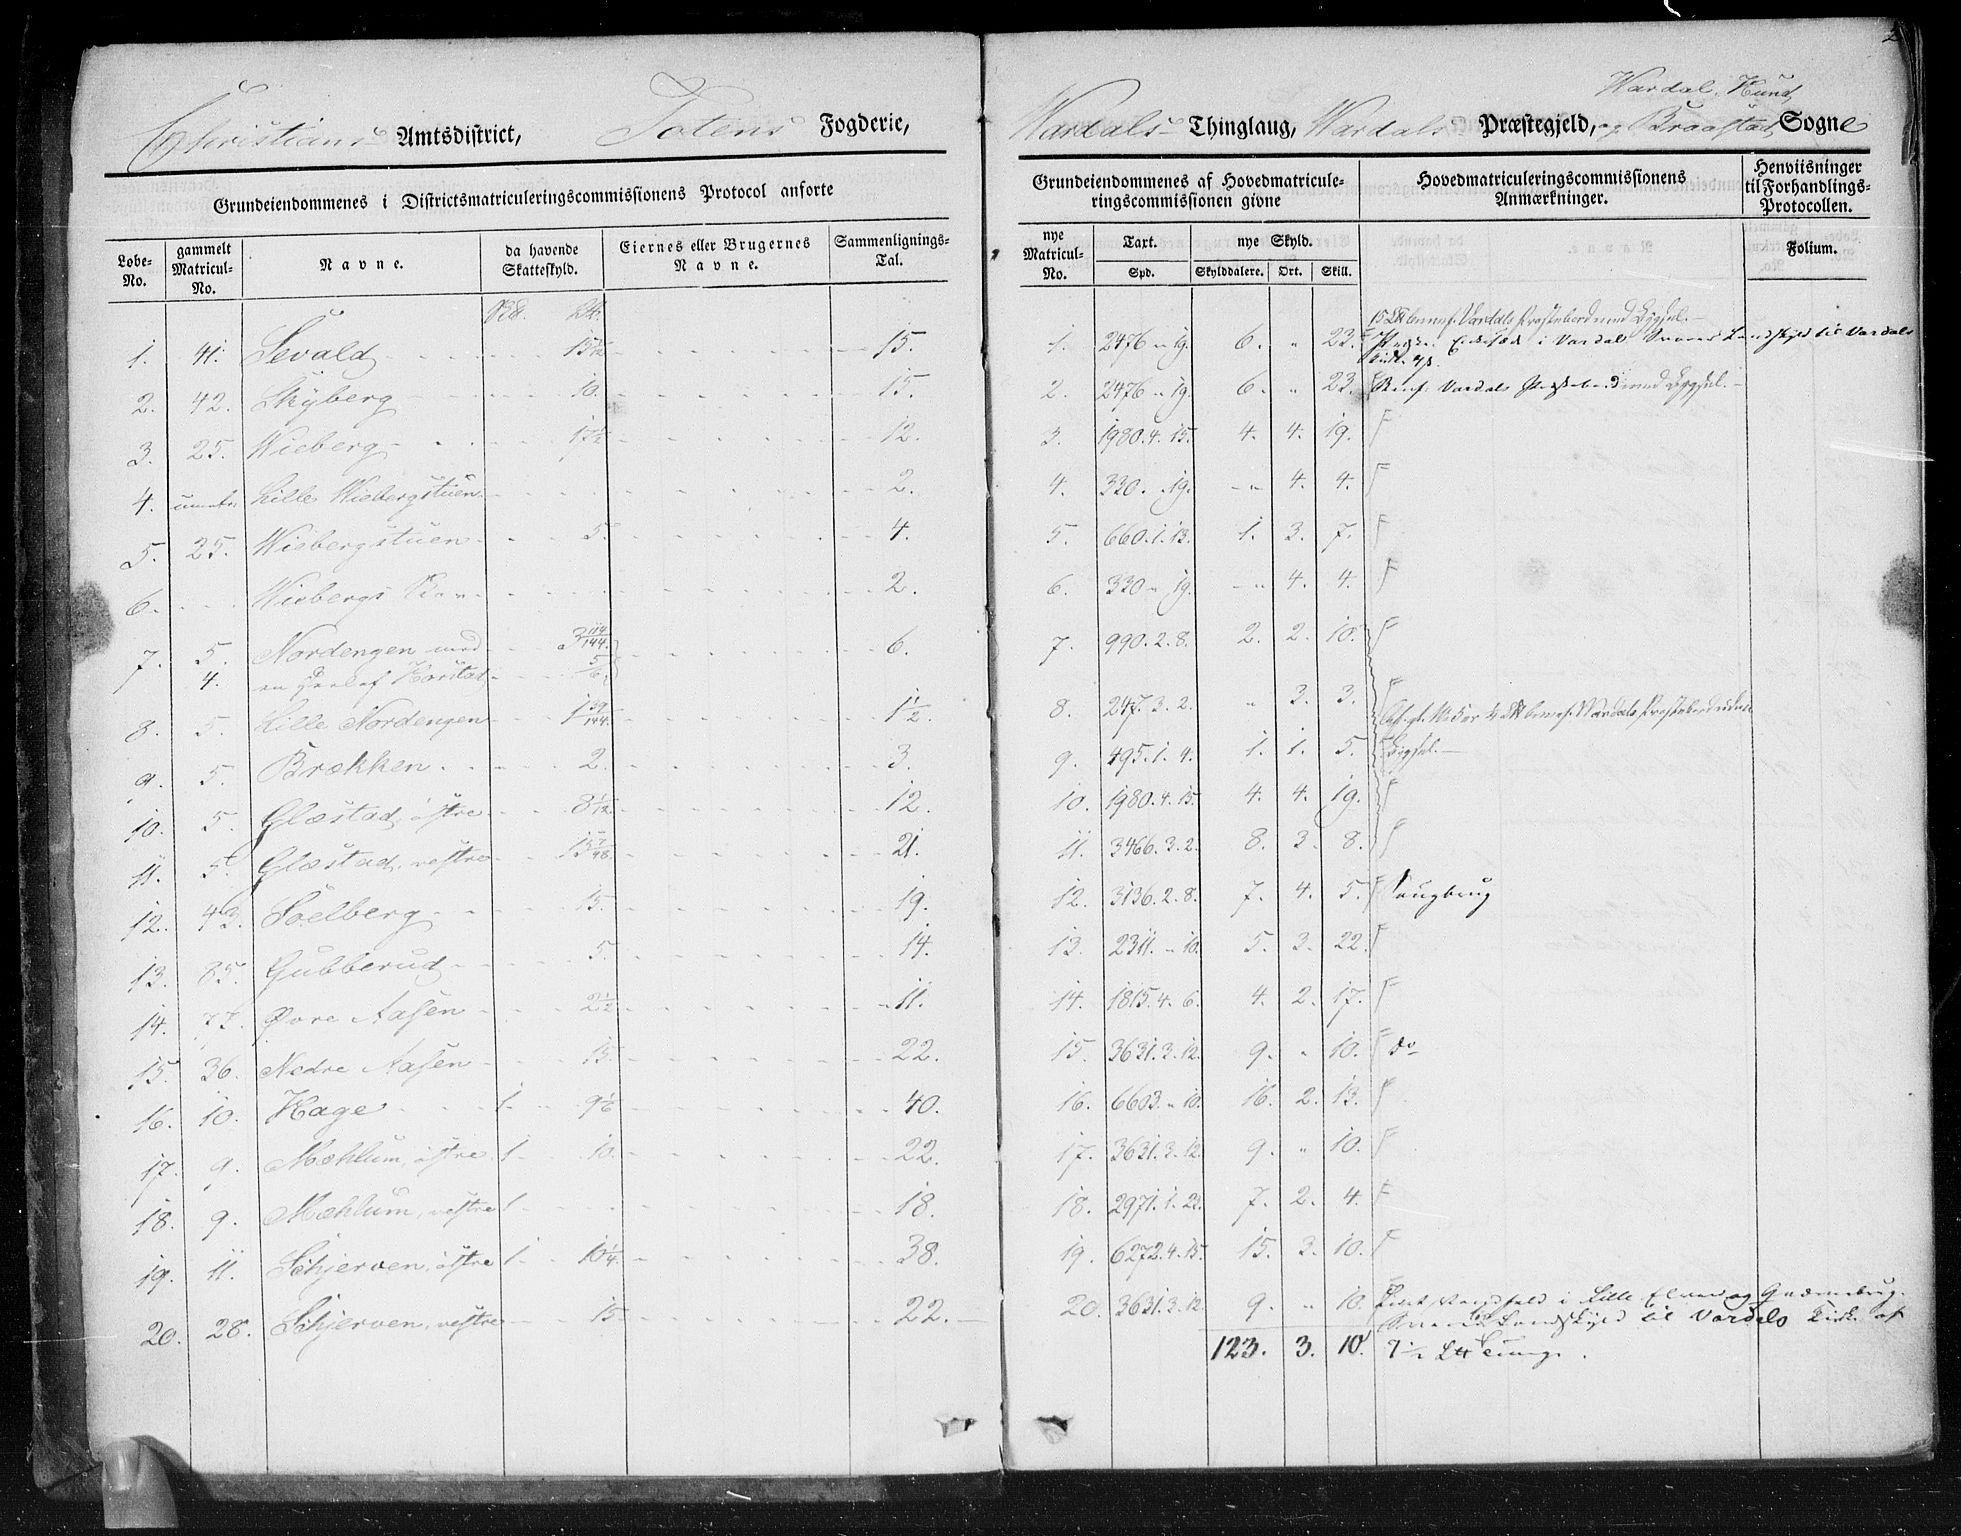 2
Christians Amtsdistrict, Totens Fogderie,
Grundeiendommenes i Districtsmatriculeringscommissionens Protocol anførte
Løbe-No. | gammelt Matricul-No. | Navne. | da havende Skatteskyld. | Eiernes eller Brugernes Navne. | Sammenlignings-Tal.
1. 41. Sevald 15 1/2 15.
2. 42. Skyberg 10. 15.
3. 25. Wieberg 17 1/2 12.
4. Lille Wiebergstuen 2.
5. 25. Wiebergstuen 5. 4.
6. Wiebergs 2.
7. 5. Nordengen med 3 114/144 6.
4. en Deel af Korstad 5/6
8. 5. Lille Nordengen 1 39/144 1 1/2.
9. 5. Brækken 2. 3.
10. 5. Glæstad, østre 8 1/12 12.
11. 5. Glæstad, vestre 15 7/48 21.
12. 43. Soelberg 15. 19.
13. 85. Gubberud 5. 14.
14. 77. Øvre Aasen 2 1/2 11.
15. 36. Nedre Aasen 15 22.
16. 10. Hage 1 9 1/6 40.
17. 9. Mæhlum, østre 1 10. 22.
18. 9. Mæhlum, vestre 1 18.
19. 11. Schjerven, østre 1 10 1/4 38.
20. 28. Schjerven, vestre 15 22.
Wardal, Hund
Wardals Thinglaug, Wardals Præstegjeld, og Braastad Sogne
Grundeiendommenes af Hovedmatriculeringscommissionen givne | Hovedmatriculeringscommissionens Anmærkninger. | Henviisninger til Forhandlings-Protocollen.
nye Matricul-No. | Taxt. Spd. | nye Skyld. Skylddalere. Ort. Skill. | Folium.
15 Benef. Vardals Præstebord med Bygsel.
1. 2476 " 19. 6. " 23. i Vardal Landskyld til Vardals
2. 2476 " 19. 6. " 23. Benef. Vardals Præstebord med Bygsel.
3. 1980. 4. 15. 4. 4. 19.
4. 330. " 19. " 4. 4.
5. 660. 1. 13. 1. 3. 7.
6. 330 " 19. " 4. 4.
7. 990. 2. 8. 2. 2. 10.
8. 247. 3. 2. " 3. 3. benef. Wardals Præstebord uden
9. 495. 1. 4. 1. 1. 5. Bygsel.
10. 1980. 4. 15. 4. 4. 19.
11. 3466. 3. 2. 8. 3. 8.
12. 3136. 2. 8. 7. 4. 5. Saugbrug
13. 2311. " 10. 5. 3. 22.
14. 1815. 4. 6. 4. 2. 17.
15. 3631. 3. 12. 9. " 10. do
16. 6603. " 10. 16. 2. 13.
17. 3631. 3. 12. 9. " 10.
18. 2971. 1. 22. 7. 2. 4.
19. 6272. 4. 15. 15. 3. 10.
20. 3631. 3. 12. 9. " 10. i Lille Elven og Qværnbrug.
Landskyld til Vardals Kirke af
123. 3. 10. 7 1/2